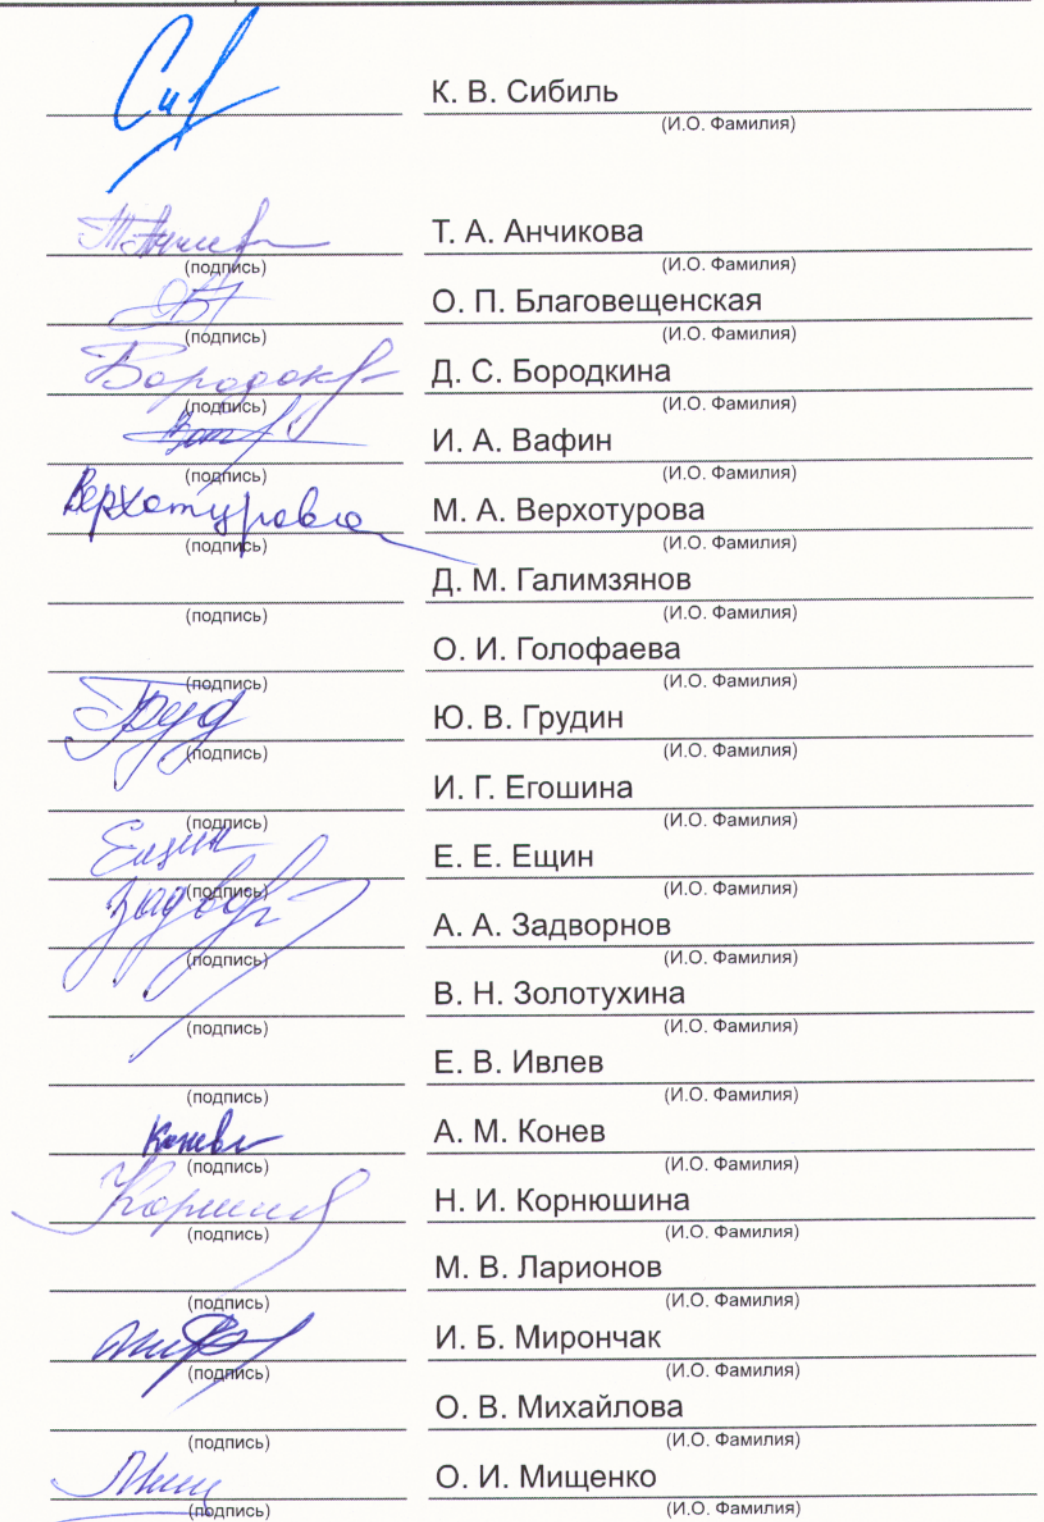 К. В. Сибиль
(И.О. Фамилия)
Т. А. Анчикова
(подпись) (И.О. Фамилия)
О. П. Благовещенская
(подпись) (И.О. Фамилия)
Бородк Д. С. Бородкина
(подпись) (И.О. Фамилия)
И. А. Вафин
(подпись) (И.О. Фамилия)
Верхотурова М. А. Верхотурова
(подпись) (И.О. Фамилия)
Д. М. Галимзянов
(подпись) (И.О. Фамилия)
О. И. Голофаева
(подпись) (И.О. Фамилия)
Груд Ю. В. Грудин
(подпись) (И.О. Фамилия)
И. Г. Егошина
(подпись) (И.О. Фамилия)
Ещин Е. Е. Ещин
(подпись) (И.О. Фамилия)
А. А. Задворнов
(подпись) (И.О. Фамилия)
В. Н. Золотухина
(подпись) (И.О. Фамилия)
Е. В. Ивлев
(подпись) (И.О. Фамилия)
Конев А. М. Конев
(подпись) (И.О. Фамилия)
Н. И. Корнюшина
(подпись) (И.О. Фамилия)
М. В. Ларионов
(подпись) (И.О. Фамилия)
И. Б. Мирончак
(подпись) (И.О. Фамилия)
О. В. Михайлова
(подпись) (И.О. Фамилия)
О. И. Мищенко
(подпись) (И.О. Фамилия)